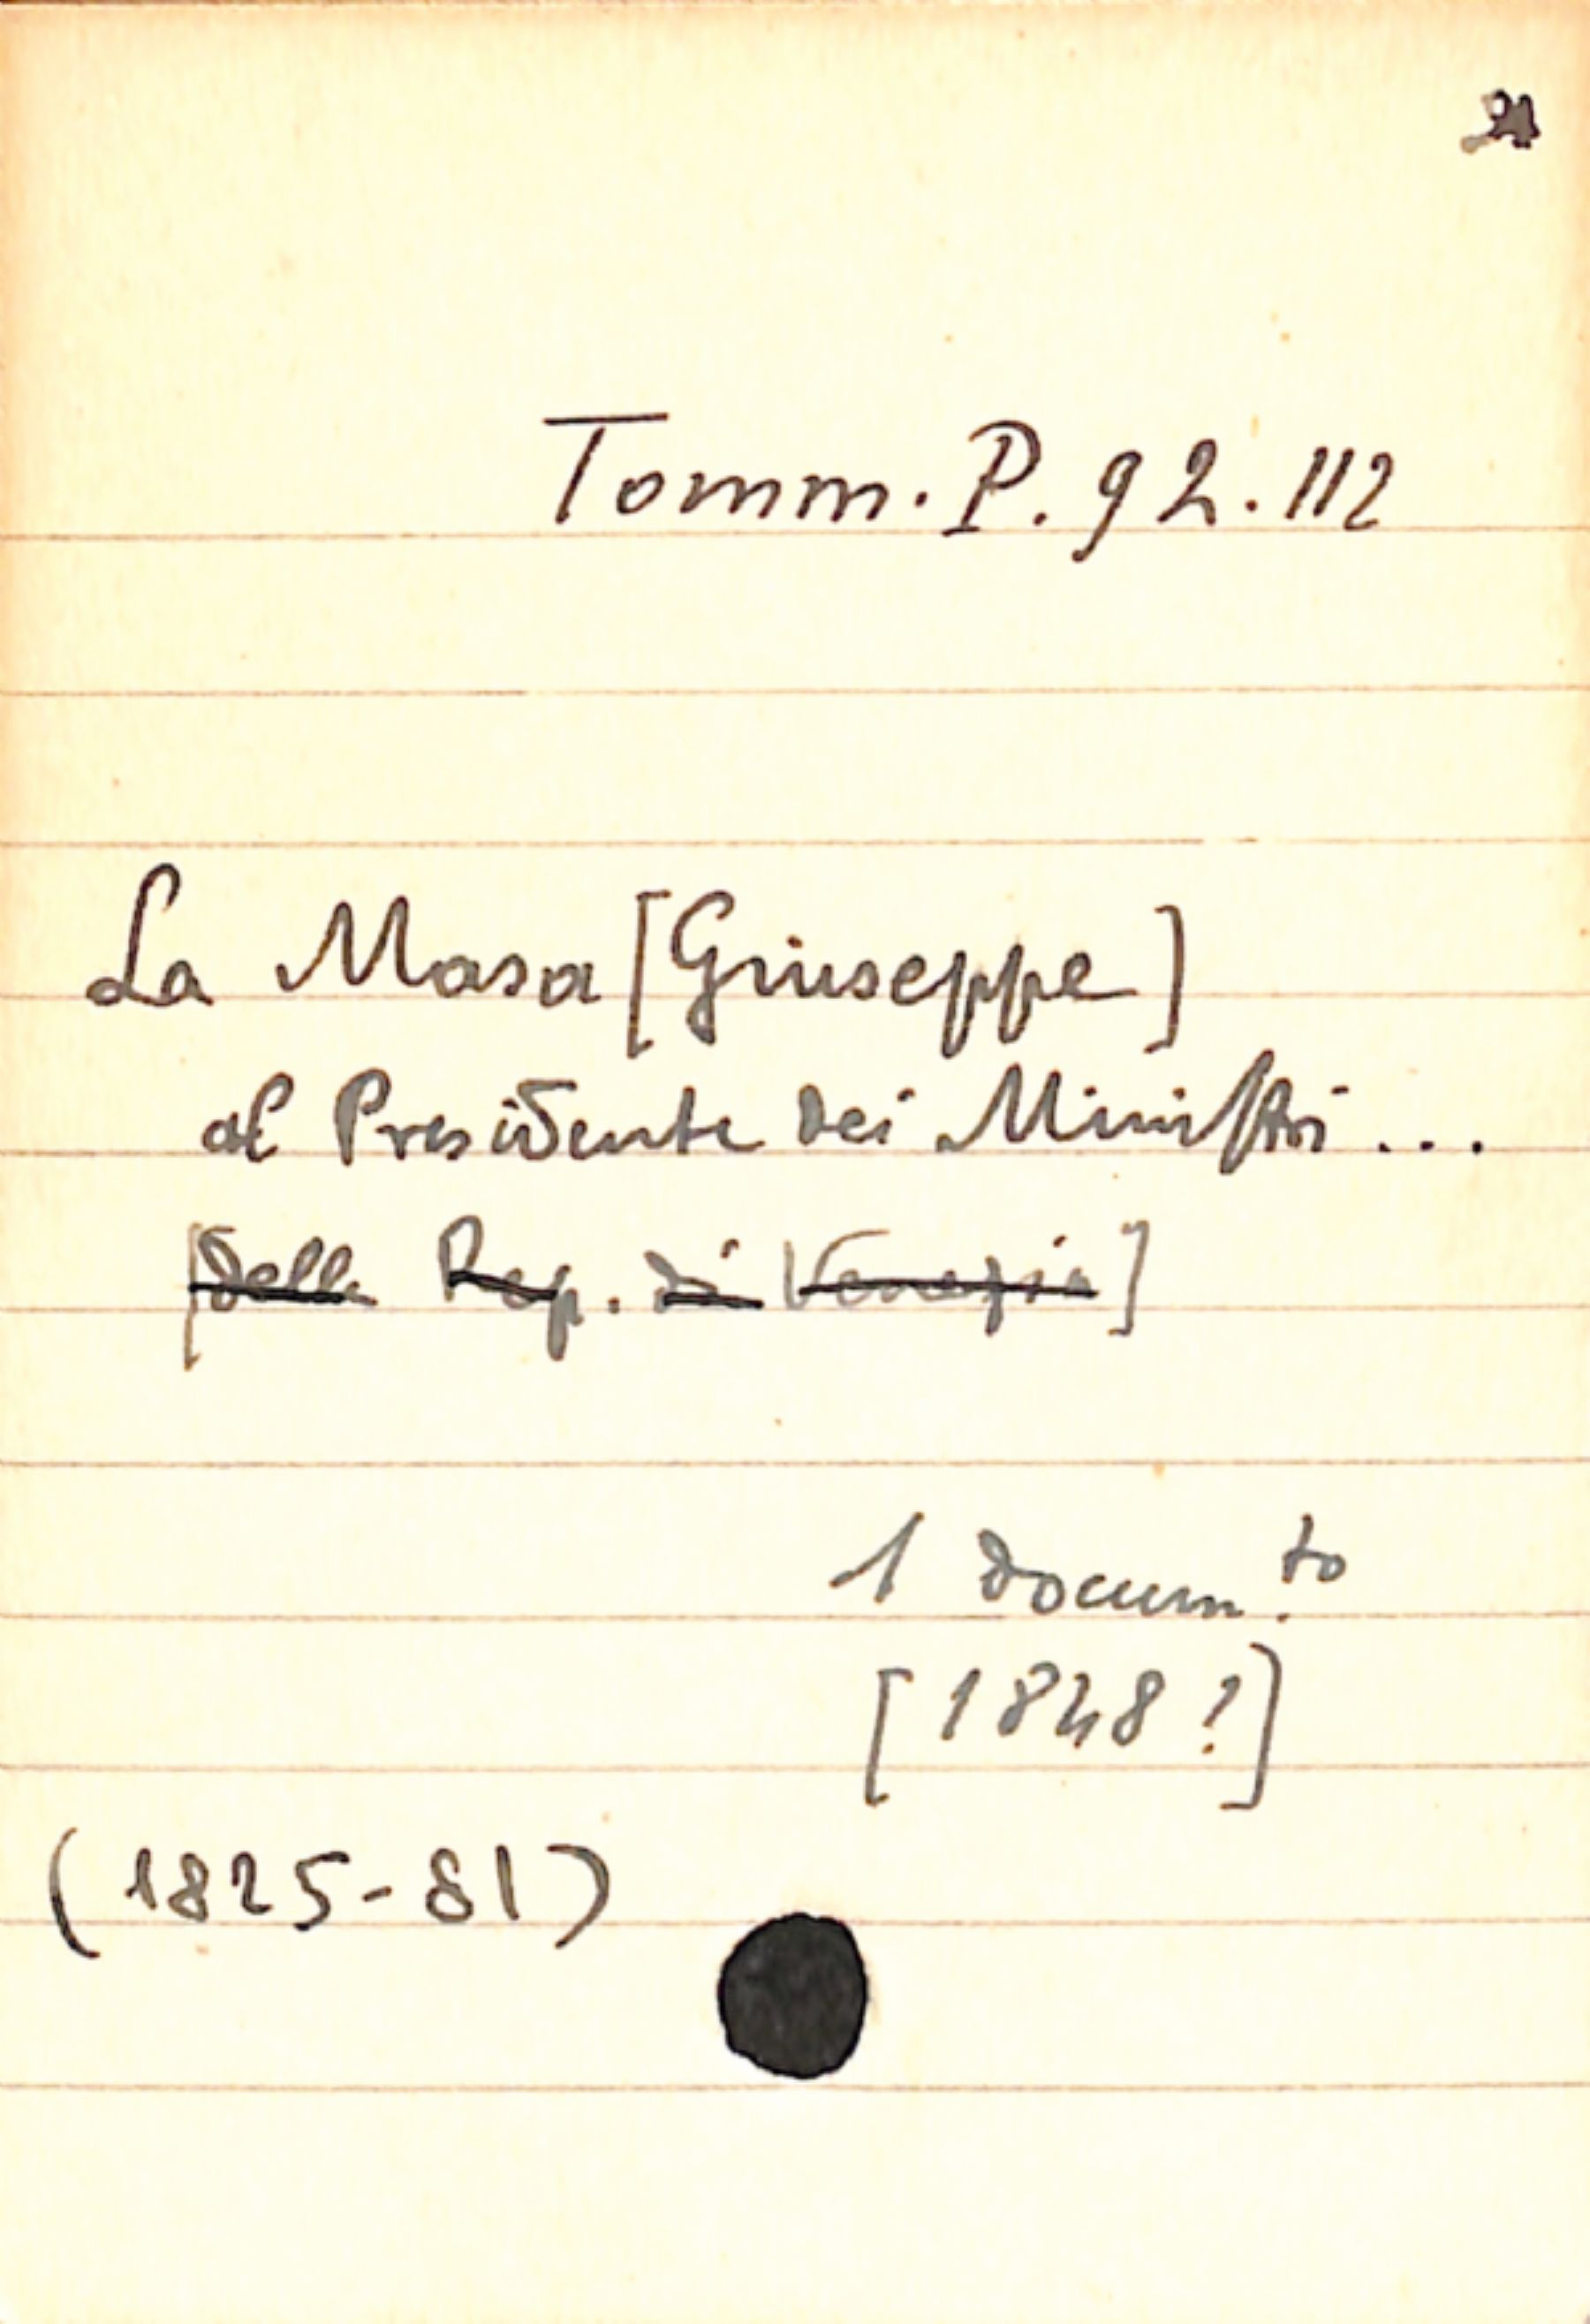 Tomm. P. 92. 112
La Masa [Giuseppe]
al Presidente dei Ministri ...
[della Rep. di Venezia]
1 docum.to
[1848?]
(1825-81)